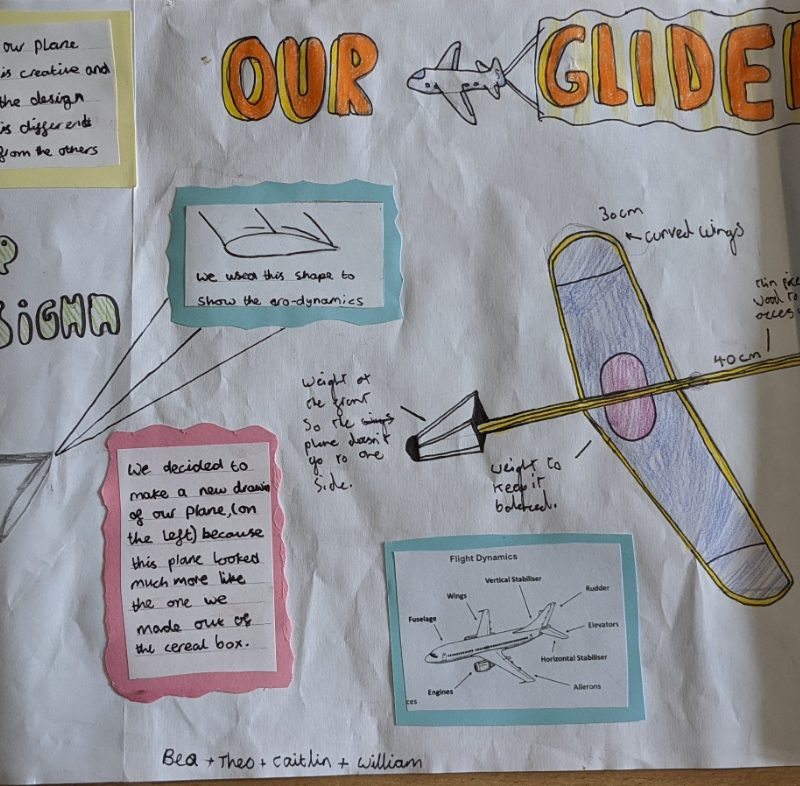 our plane
is creative and
the design
is different
from the others
OUR
GLIDE
We used this shape to
show the ero-dynamics
30cm
curved wings
thin
wood to
40cm
weight at
the front
so the wings
plane doesn't
go to one
side.
weight to
keep it
balanced.
We decided to
make a new drawin
of our plane, (on
the left) because
this plane looked
much more like
the one we
made out of
the cereal box.
Flight Dynamics
Vertical Stabiliser
Wings
Rudder
Fuselage
Elevators
Horizontal Stabiliser
Engines
Ailerons
ces
Bea + Theo + Caitlin + William